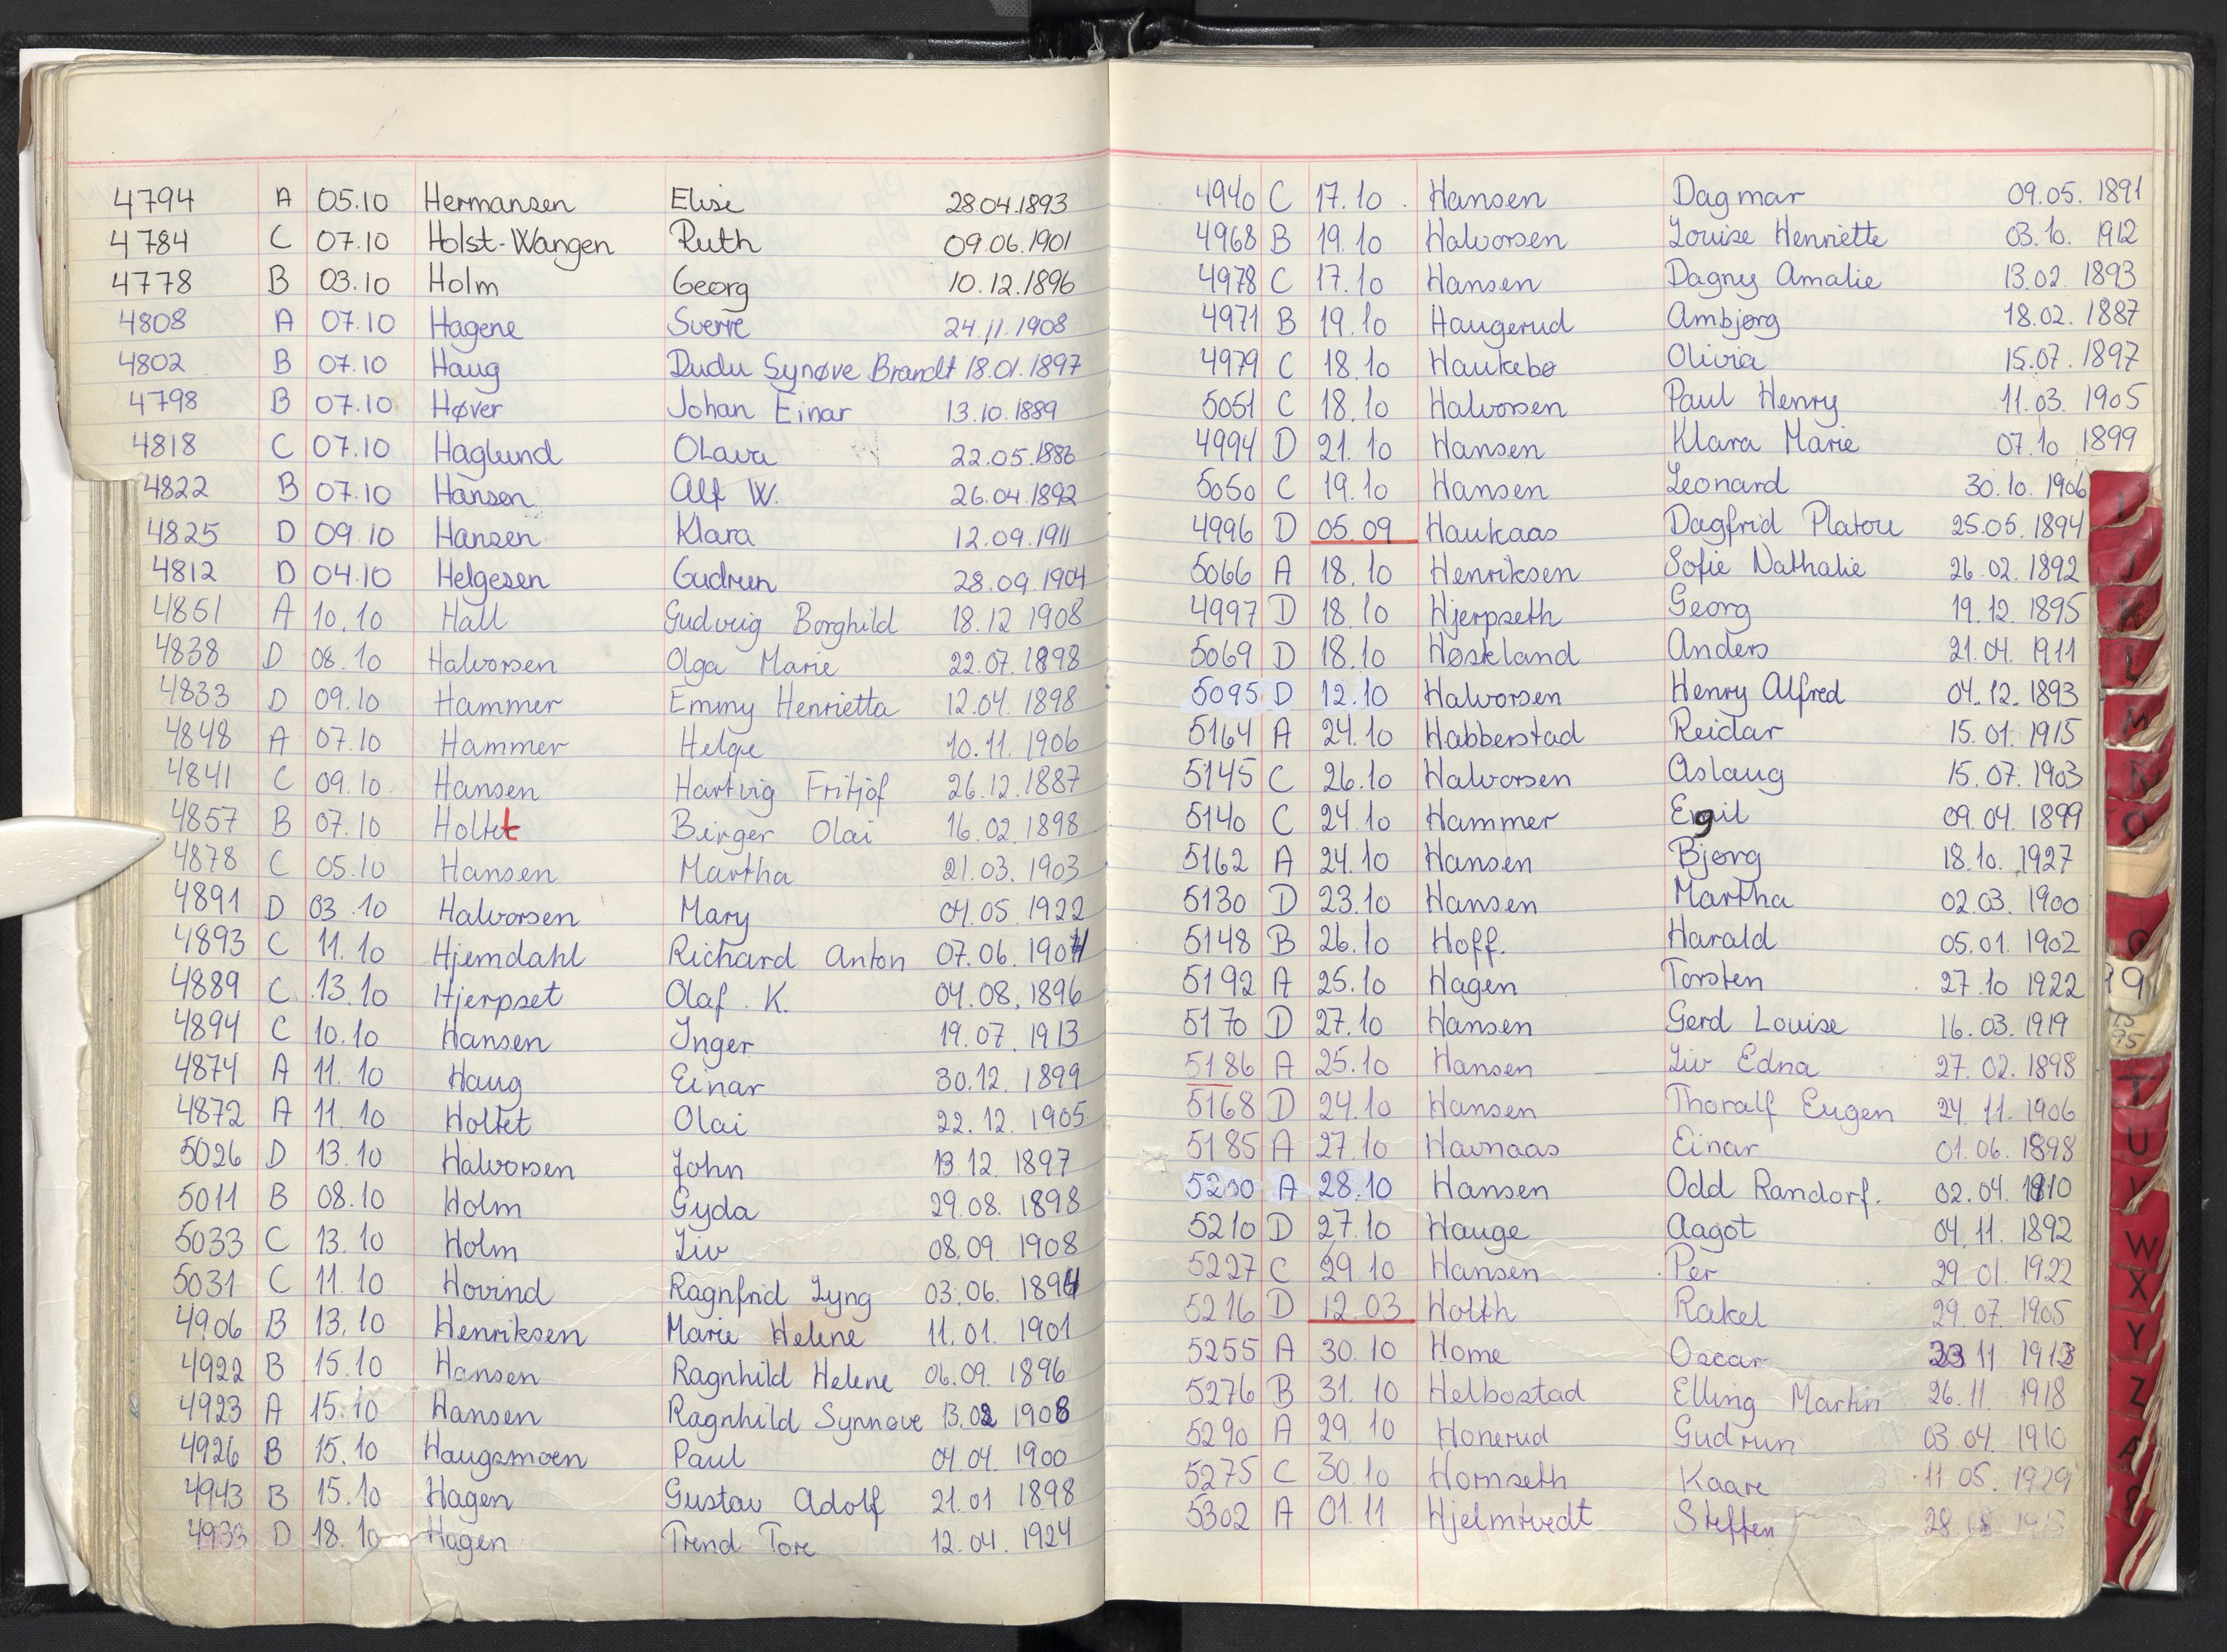 4794 A 05.10 Hermansen Elise 28.04.1893
4784 C 07.10 Holst-Wangen Ruth 09.06.1901
4778 B 03.10 Holm Georg 10.12.1896
4808 A 07.10 Hagene Sverre 24.11.1908
4802 B 07.10 Haug Dudu Synøve Brandt 18.01.1897
4798 B 07.10 Høver Johan Einar 13.10.1889
4818 C 07.10 Haglund Olava 22.05.1886
4822 B 07.10 Hansen Alf W. 26.04.1892
4825 D 09.10 Hansen Klara 12.09.1911
4812 D 04.10 Helgesen Gudrun 28.09.1904
4851 A 10.10 Hall Gudveig Borghild 18.12 1908
4838 D 08.10 Halvorsen Olga Marie 22.07.1898
4833 D 09.10 Hammer Emmy Henrietta 12.04.1898
4848 A 07.10 Hammer Helge 10.11.1906
4841 C 09.10 Hansen Hartvig Fritjof 26.12.1887
4857 B 07.10 Holtet Birger Olai 16.02.1898
4878 C 05.10 Hansen Martha 21.03.1903
4891 D 03.10 Halvorsen Mary 04.05.1922
4893 C 11.10 Hjemdahl Richard Anton 07.06.1904
4889 C 13.10 Hjerpset Olaf K. 04.08.1896
4894 C 10.10 Hansen Inger 19.07.1913
4874 A 11.10 Haug Einar 30.12.1899
4872 A 11.10 Holtet Olai 22.12.1905
5026 D 13.10 Halvorsen John 13.12.1897
5011 B 08.10 Holm Gyda 29.08.1898
5033 C 13.10 Holm Liv 08.09.1908
5031 C 11.10 Hovind Ragnfrid Lyng 03.06.1894
4906 B 13.10 Henriksen Marie Helene 11.01.1901
4922 B 15.10 Hansen Ragnhild Helene 06.09.1896
4923 A 15.10 Hansen Ragnhild Synnøve 13.02 1908
4926 B 15.10 Haugsmoen Paul 04.04.1900
4943 B 15.10 Hagen Gustav Adolf 21.01 1898
4933 D 18.10 Hagen Trend Tore 12.04.1924
4940 C 17.10. Hansen Dagmar 09.05.1891
4968 B 19.10 Halvorsen Louise Henriette 03.10.1912
4978 C 17.10 Hansen Dagny Amalie 13.02.1893
4971 B 19.10 Haugerud Ambjørg 18.02.1887
4979 C 18.10 Haukebø Olivia 15.07.1897
5051 C 18.10 Halvorsen Paul Henry 11.03.1905
4994 D 21.10 Hansen Klara Marie 07.10 1899
5050 C 19.10 Hansen Leonard 30.10.1906
4996 D 05.09 Haukaas Dagfrid Platou 25.05.1894
5066 A 18.10 Henriksen Sofie Nathalie 26.02.1892
4997 D 18.10 Hjerpseth Georg 19.12.1895
5069 D 18.10 Høskland Anders 21.04.1911
5095 D 12.10 Halvorsen Henry Alfred 04.12.1893
5164 A 24.10 Habberstad Reidar 15.01.1915
5145 C 26.10 Halvorsen Aslaug 15.07.1903
5140 C 24.10 Hammer Egil 09.04.1899
5162 A 24.10 Hansen Bjørg 18.10.1927
5130 D 23.10 Hansen Martha 02.03.1900
5148 B 26.10 Hoff. Harald 05.01.1902
5192 A 25.10 Hagen Torsten 27.10 1922
5170 D 27.10 Hansen Gerd Louise 16.03.1919
5186 A 25.10 Hansen Liv Edna 27.02.1898
5168 D 24.10 Hansen Thoralf Eugen 24.11.1906
5185 A 27.10 Havnaas Einar 01.06.1898
5200 A 28.10 Hansen Odd Randorf. 02.04.1910
5210 D 27.10 Hauge Aagot 04.11.1892
5227 C 29.10 Hansen Per 29.01.1922
5216 D 12.03 Holth Rakel 29.07.1905
5255 A 30.10 Home Oscar 11
5276 B 31.10 Helbostad Elling Martin 26.11.1918
5290 A 29.10 Honerud Gudrun 03.04.1910
5275 C 30.10 Hornseth Kaare 11.05.1929
5302 A 01.11 Hjelmtvedt Steffen
I
J
K
L
M
N
O
T
U
V
W
X
Y
Z